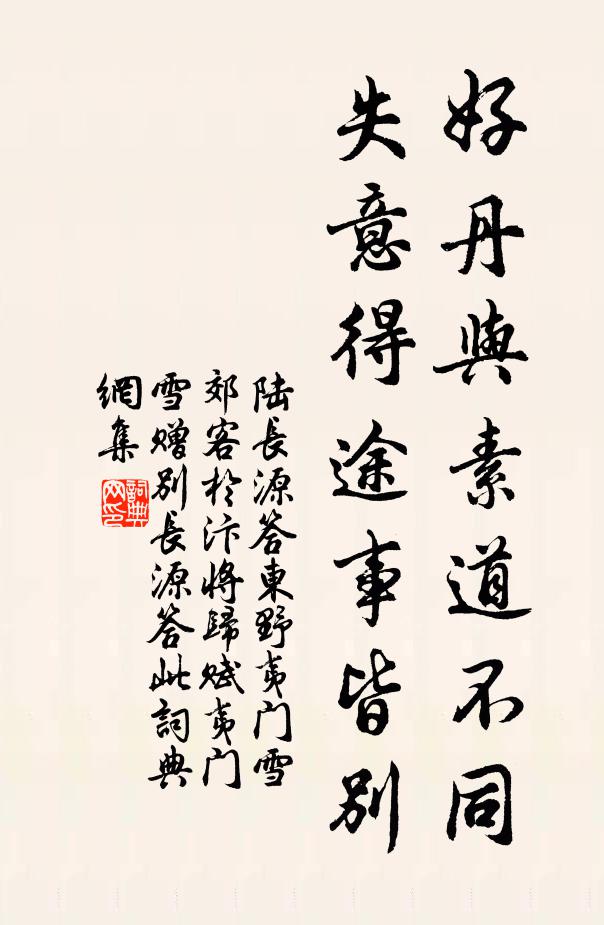 好丹與素道不同
失意得途事皆別
陸長源答東野夷門雪
郊客於汴將歸賦夷門
雪贈別長源答此詞典
網集
詞典
网印